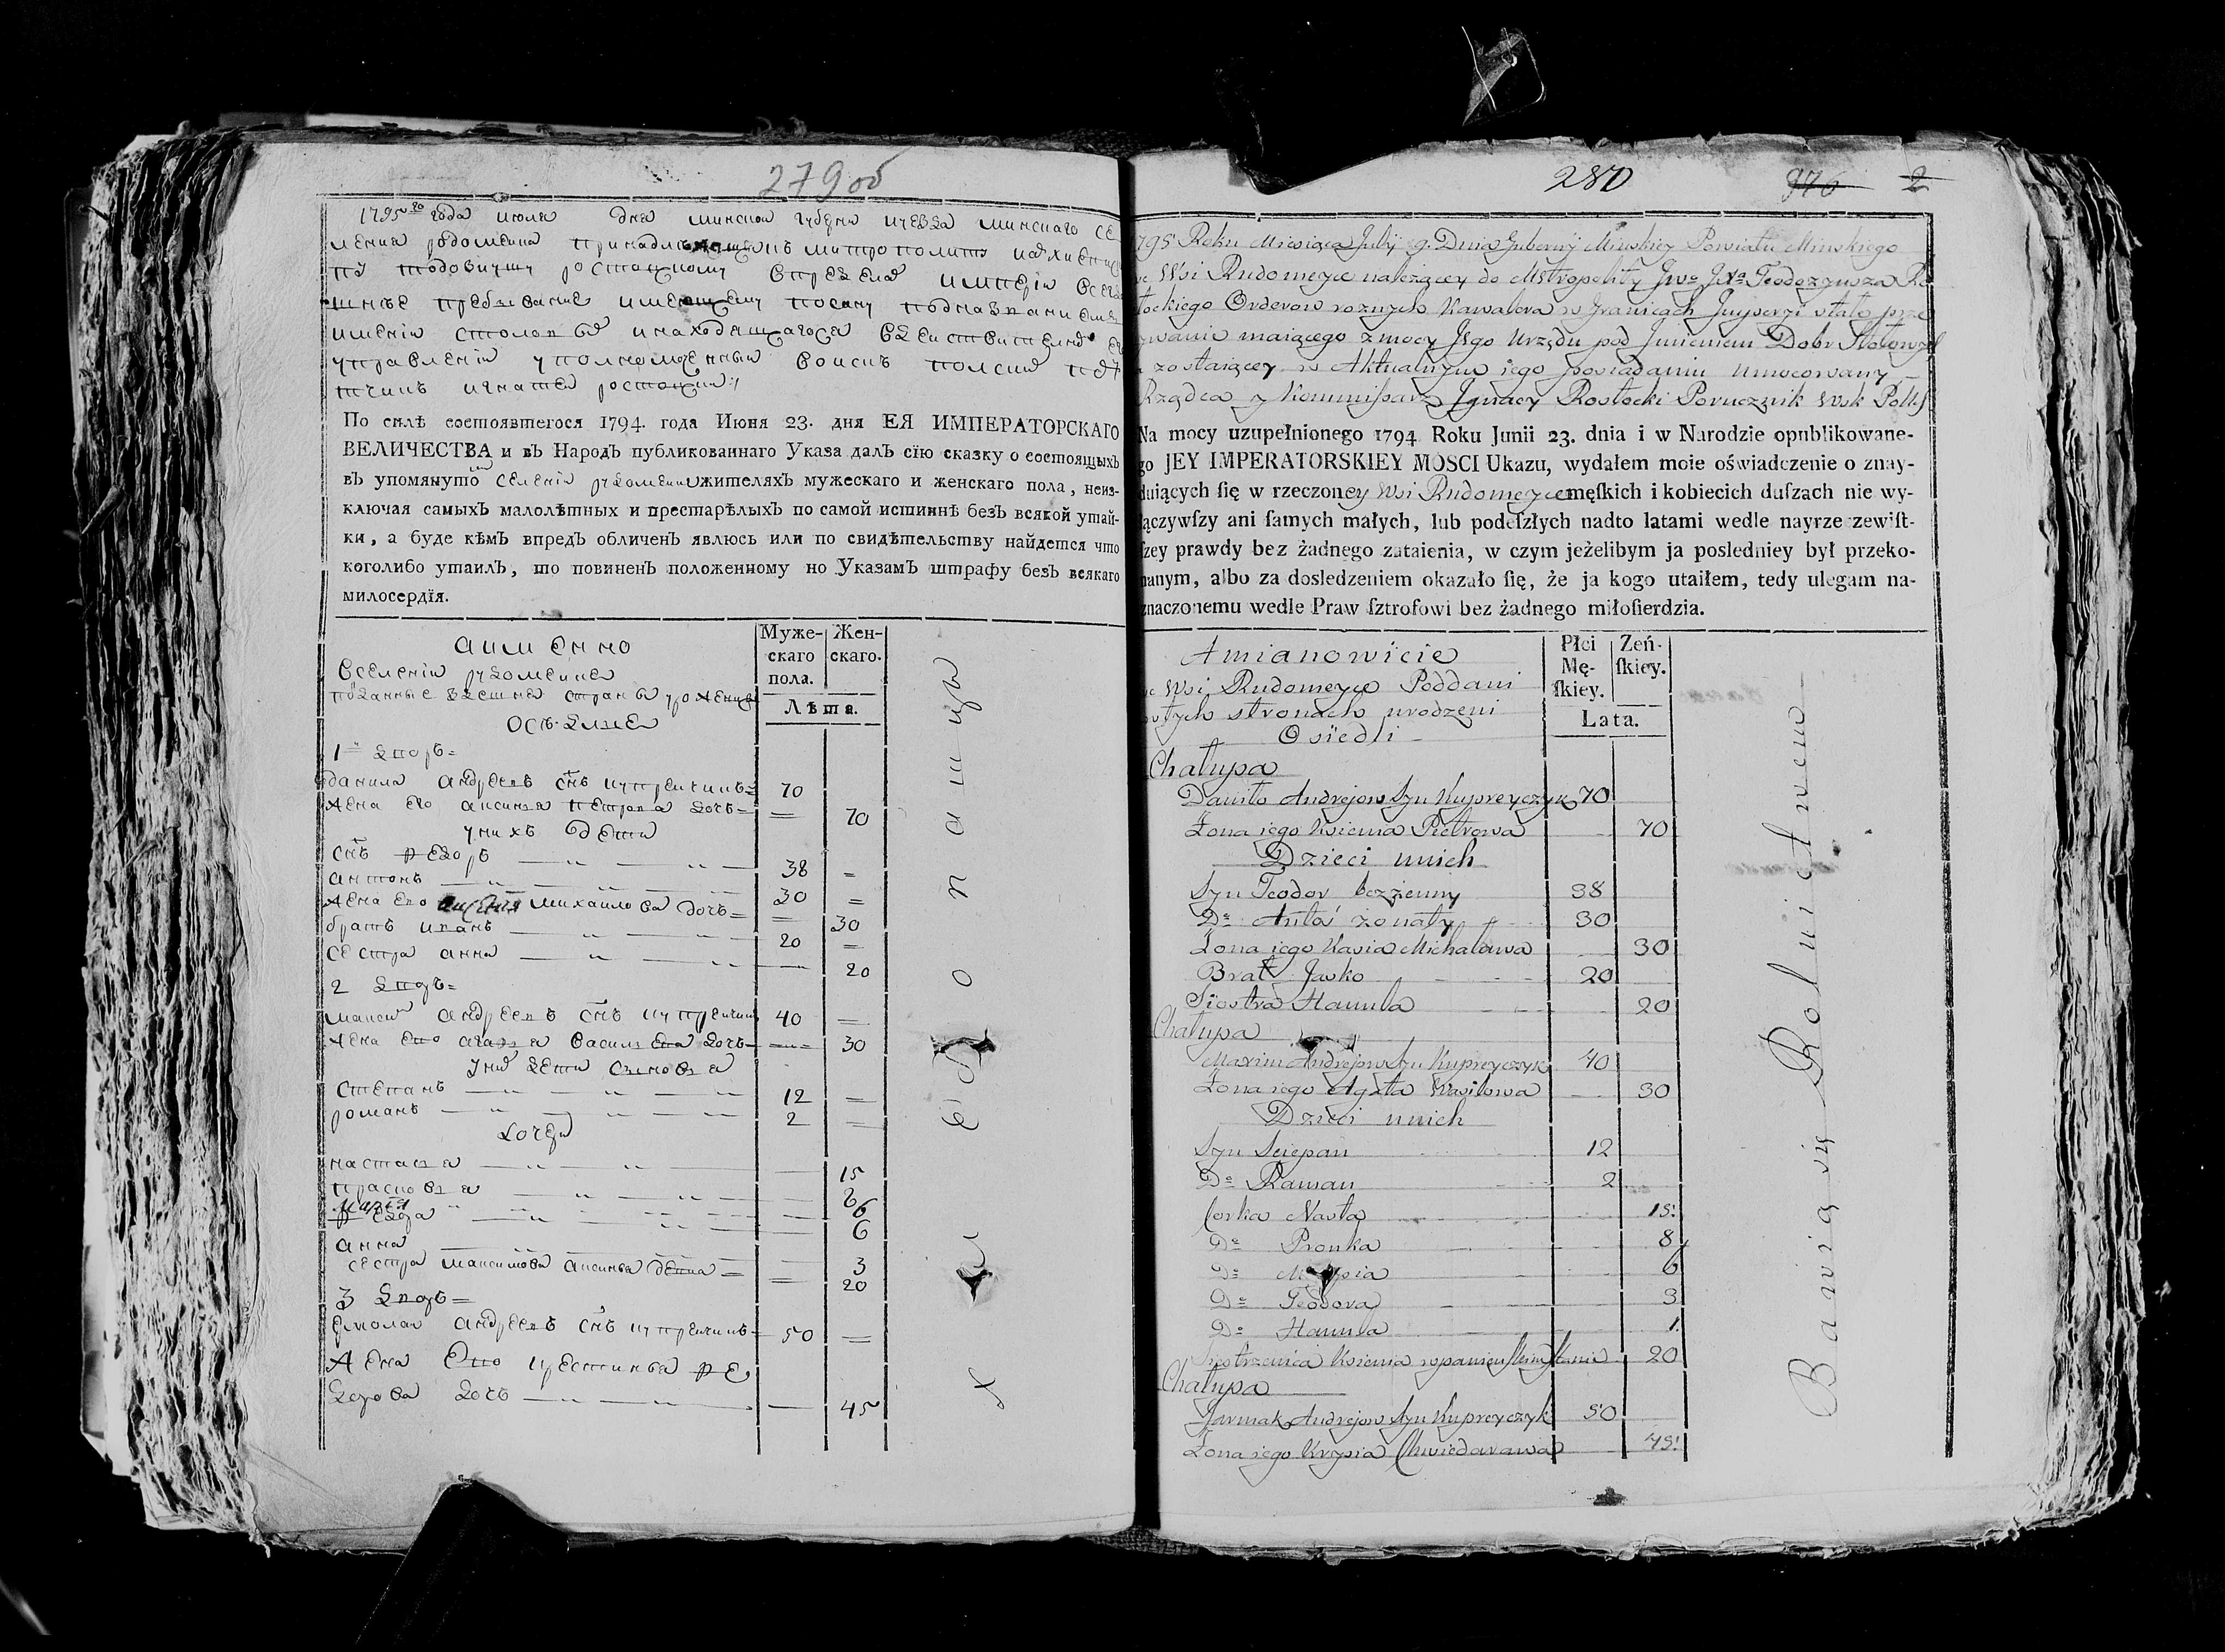 279об
1795го года июля дня минской губерни иуезда минскаго се
ления рудомеина принадлежащемъ митрополиту
ростоцкому впределѣ империи
пребывание имеющему
имении столовъ инаходящагося вдействителномъ
управлении уполномоченный воискъ полских
игнатеи ростоцкий
По силѣ состоявшегося 1794. года Июня 23. дня ЕЯ ИМПЕРАТОРСКАГО
ВЕЛИЧЕСТВА и въ Народъ публикованнаго Указа далъ сїю сказку о состоящыхъ
въ упомянутомъ селении рудомеине жителяхъ мужескаго и женскаго пола, неиз-
ключая самыхъ малолѣтныхъ и престарѣлыхъ по самой истиннѣ безъ всякой утай-
ки, а буде кѣмъ впредь обличенъ явлюсь или по свидѣтельству найдется что
коголибо утаилъ, то повиненъ положенному по Указамъ штрафу безъ всякаго
милосердїя.
аимянно
вселении рудомеине
поданные здешней страны уроженцы
оседлые
Муже-
скаго
пола.
Жен-
скаго.
Лѣта.
1й дворъ=
данила андреевъ снъ купреичикъ= 70
жена его аксинья петрова дочь= = 70
уних дети
снъ федоръ 38 =
антонъ 30 =
жена его михаилова дочь= = 30
братъ иванъ 20 =
сестра анна 20
2 дворъ=
максим андреевъ снъ купреичик 40 =
жена его агафья васильева дочь 30
уних дети сыновья
степанъ 12 =
романъ 2 =
дочери
настасья 15
прасковья 8
марья 6
федора 6
анна 3
сестра максимова аксинья девка = = 20
3 дворъ=
ермолаи андреевъ снъ купреичикъ 50 =
жена его кристинья фе
дорова дочь 45
хлебопашцы
280
976 2
1795 Roku Miesiąca Julij 9. Dnia Gubernij Minskiey Powiatu Minskiego
we Wsi Rudomeyce należącey do Mitropolity Teodozyusza Ro
stockiego Orderow roznych Kawalera w Granicach Imperyi stałe prze
bywanie maiącego z mocy Jego Urzędu pod Imieniem Dobr Stołowych
a zostaiącey w Aktualnym iego posiadaniu umocowany
Rządca y Kommissarz Ignacy Rostocki Porucznik Wsk Polls
Na mocy uzupełnionego 1794 Roku Junii 23. dnia i w Narodzie opublikowane-
go JEY IMPERATORSKIEY MOSCI Ukazu, wydałem moie oświadczenie o znay-
duiących ſię w rzeczoney Wsi Rudomeyce męſkich i kobiecich duſzach nie wy-
łączywſzy ani ſamych małych, lub podeſzłych nadto latami wedle nayrzeczewiſt-
ſzey prawdy bez żadnego zataienia, w czym jeżelibym ja posledniey był przeko-
nanym, albo za dosledzeniem okazało ſię, że ja kogo utaiłem, tedy ulegam na-
znaczonemu wedle Praw ſztrofowi bez żadnego miłoſierdzia.
Amianowicie
we Wsi Rudomeyce Poddani
w tych stronach urodzeni
Osiedli
Płci
Mę-
ſkiey.
Zeń-
ſkiey.
Lata.
Chałupa
Daniło Andrejow Syn Kupreyczyk 70
Żona iego Ksienia Pietrowa 70
Dzieci unich
Syn Teodor bezżenny 38
Do Antoś żonaty 30
Żona iego Kasia Michałowa 30
Brat Jaśko 20
Siostra Hanula 20
Chałupa
Maxim Andrejow Syn Kupreyczyk 40
Żona iego Agata Wasilowa 30
Dzieci unich
Syn Sciepan 12
Do Raman 2
Corka Nasta 15
Do Pronka 8
Do Marysia 6
Do Teodora 3
Do Hanula 1
Siostrzenica Ksienia w panieńskim stanie 20
Chałupa
Jarmak Andrejow Syn Kupreyczyk 50
Żona iego Krysia Chwiedarawa 45
Bawią się Rolnictwem